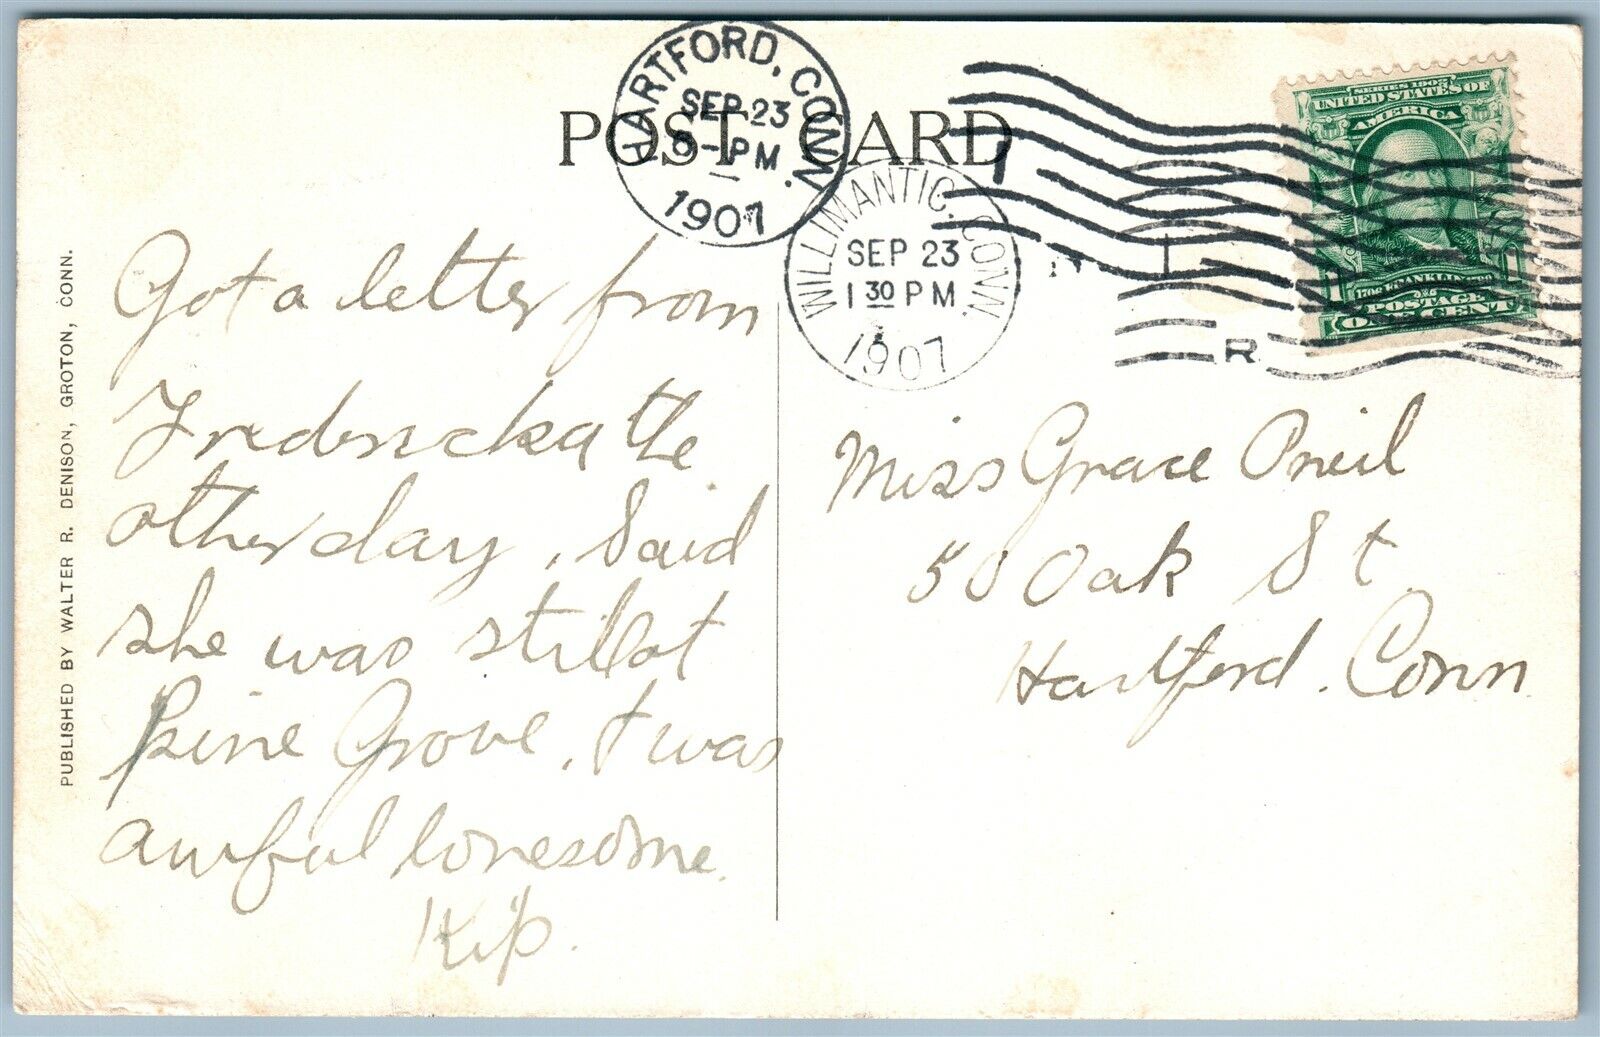 POST CARD
HARTFORD, CONN.
SEP 23
8-PM
1907
WILLIMANTIC, CONN.
SEP 23
1 30 PM
1907
R
SERIES 1902
UNITED STATES OF
AMERICA
FRANKLIN
POSTAGE
ONE CENT
PUBLISHED BY WALTER R. DENISON, GROTON, CONN.
Got a letter from
Fredericka the
other day, Said
she was still at
Pine Grove, & was
awful lonesome.
Kip.
Miss Grace Oneil
50 Oak St.
Hartford. Conn.